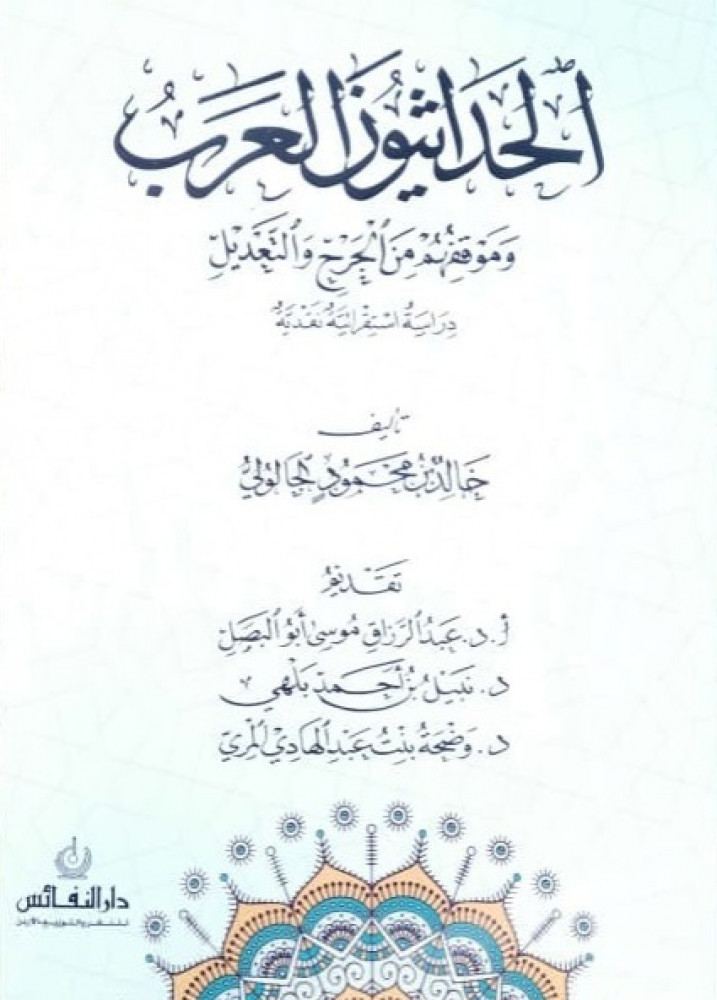 الحداثيون العرب
وَمَوْقِفُهُمْ مِنَ ٱلْجَرْحِ وَٱلتَّعْدِيلِ
دِرَاسَةٌ اسْتِقْرَائِيَّةٌ نَقْدِيَّةٌ
تأليف
خَالِدُ بْنُ مَحْمُودٍ الجالولي
تَقْدِيمُ
أ. د. عَبْدُ الرَّزَّاقِ مُوسَى أَبُو ٱلْبَصَلِ
د. نَبِيلُ بْنُ أَحْمَدَ بَلْهِي
د. وَضْحَةُ بِنْتُ عَبْدِ الْهَادِي المري
دار النفائس
للنشر والتوزيع - الأردن